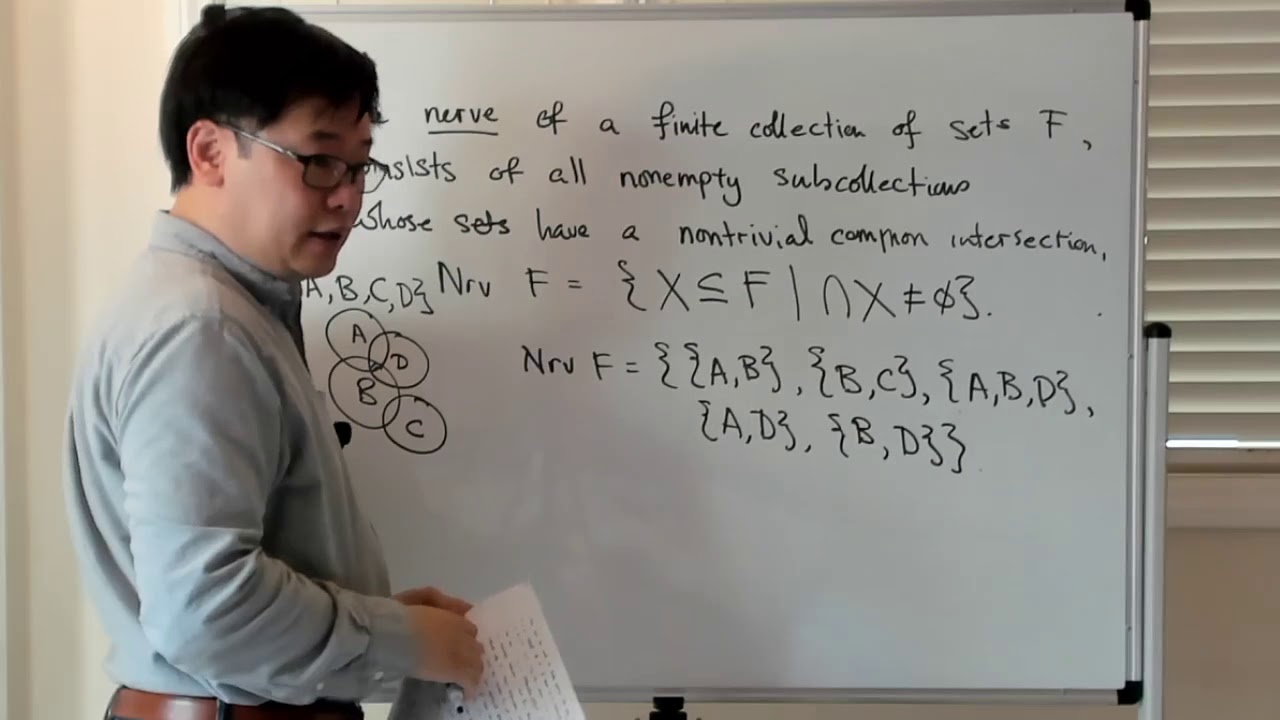 nerve of a finite collection of sets F,
of all nonempty subcollections
whose sets have a nontrivial common intersection.
A,B,C,D} Nrv F = {X⊆F|∩X≠∅}.
A
D
B
C
Nrv F = {{A,B}, {B,C}, {A,B,D},
{A,D}, {B,D}}